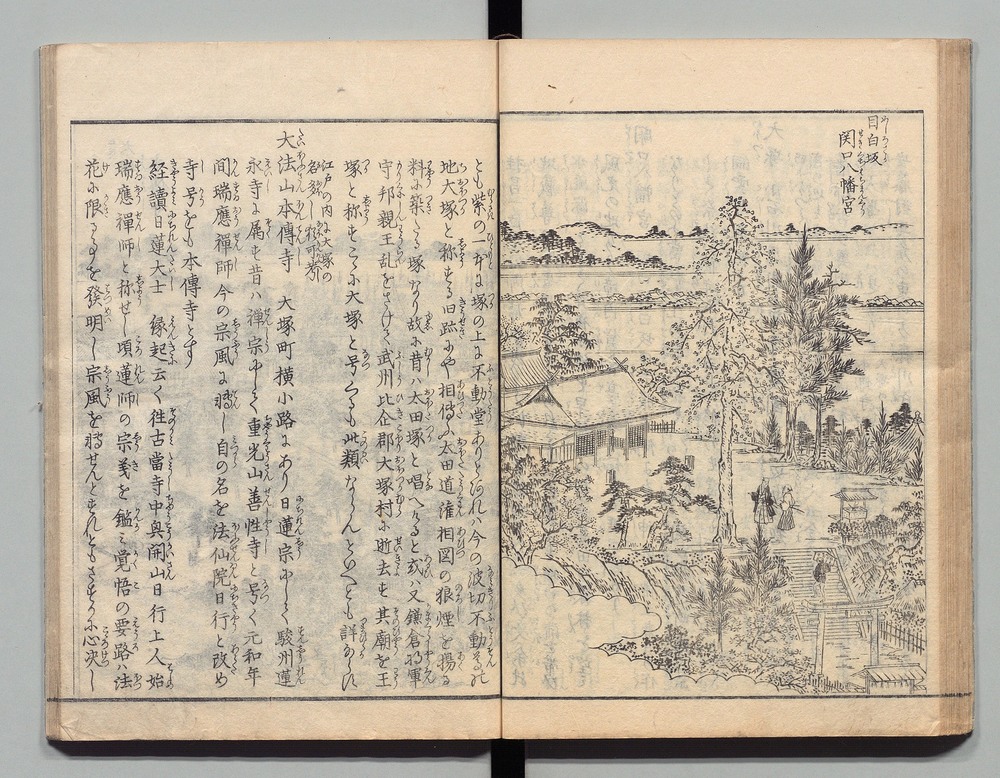 目白坂
関口八幡宮
とも紫の一本に塚の上に不動堂ありとあれハ今の波切不動其
地大塚と称する旧跡にや相傳ふ太田道潅相図の狼煙を揚る
料に築たる塚なり故に昔ハ太田塚と唱へたると或ハ又鎌倉将軍
守邦親王乱をさけて武州比企郡大塚村に逝去す其廟を王
塚と称すこゝに大塚と号くるも此類ならんといへども詳ならす
江戸の内に大塚の
名多し
大法山本傳寺 大塚町横小路にあり日蓮宗にして駿州蓮
永寺に属す昔ハ禅宗にして重光山善性寺と号く元和年
間瑞應禅師今の宗風に転し自の名を法仙院日行と改め
寺号をも本傳寺とす
経讀日蓮大士 縁起云く徃古當寺中興開山日行上人始
瑞應禅師と称せし頃蓮師の宗義を鑑ミ覚悟の要路ハ法
花に限ることを發明し宗風を転せんとすれともさすかに心決し